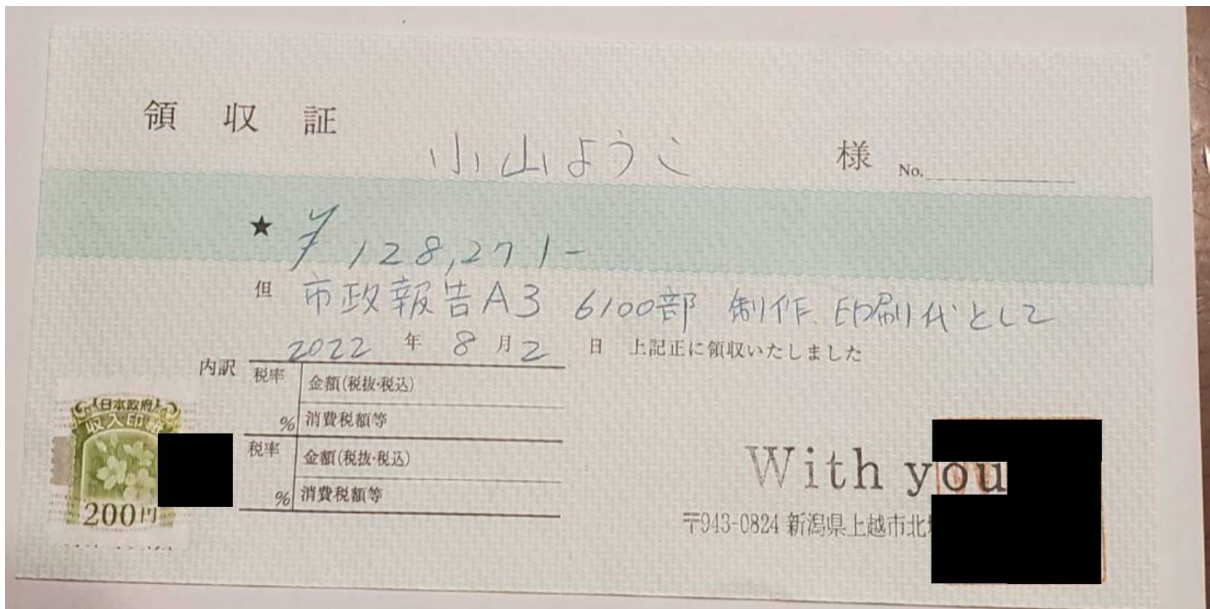 領 収 証
小山ようこ 様 No.
★ ¥128,271-
但 市政報告A3 6100部 制作.印刷代として
2022 年 8 月 2 日 上記正に領収いたしました
内訳 税率 金額(税抜・税込)
% 消費税額等
税率 金額(税抜・税込)
% 消費税額等
日本政府
収入印紙
200円
With you
〒943-0824 新潟県上越市北